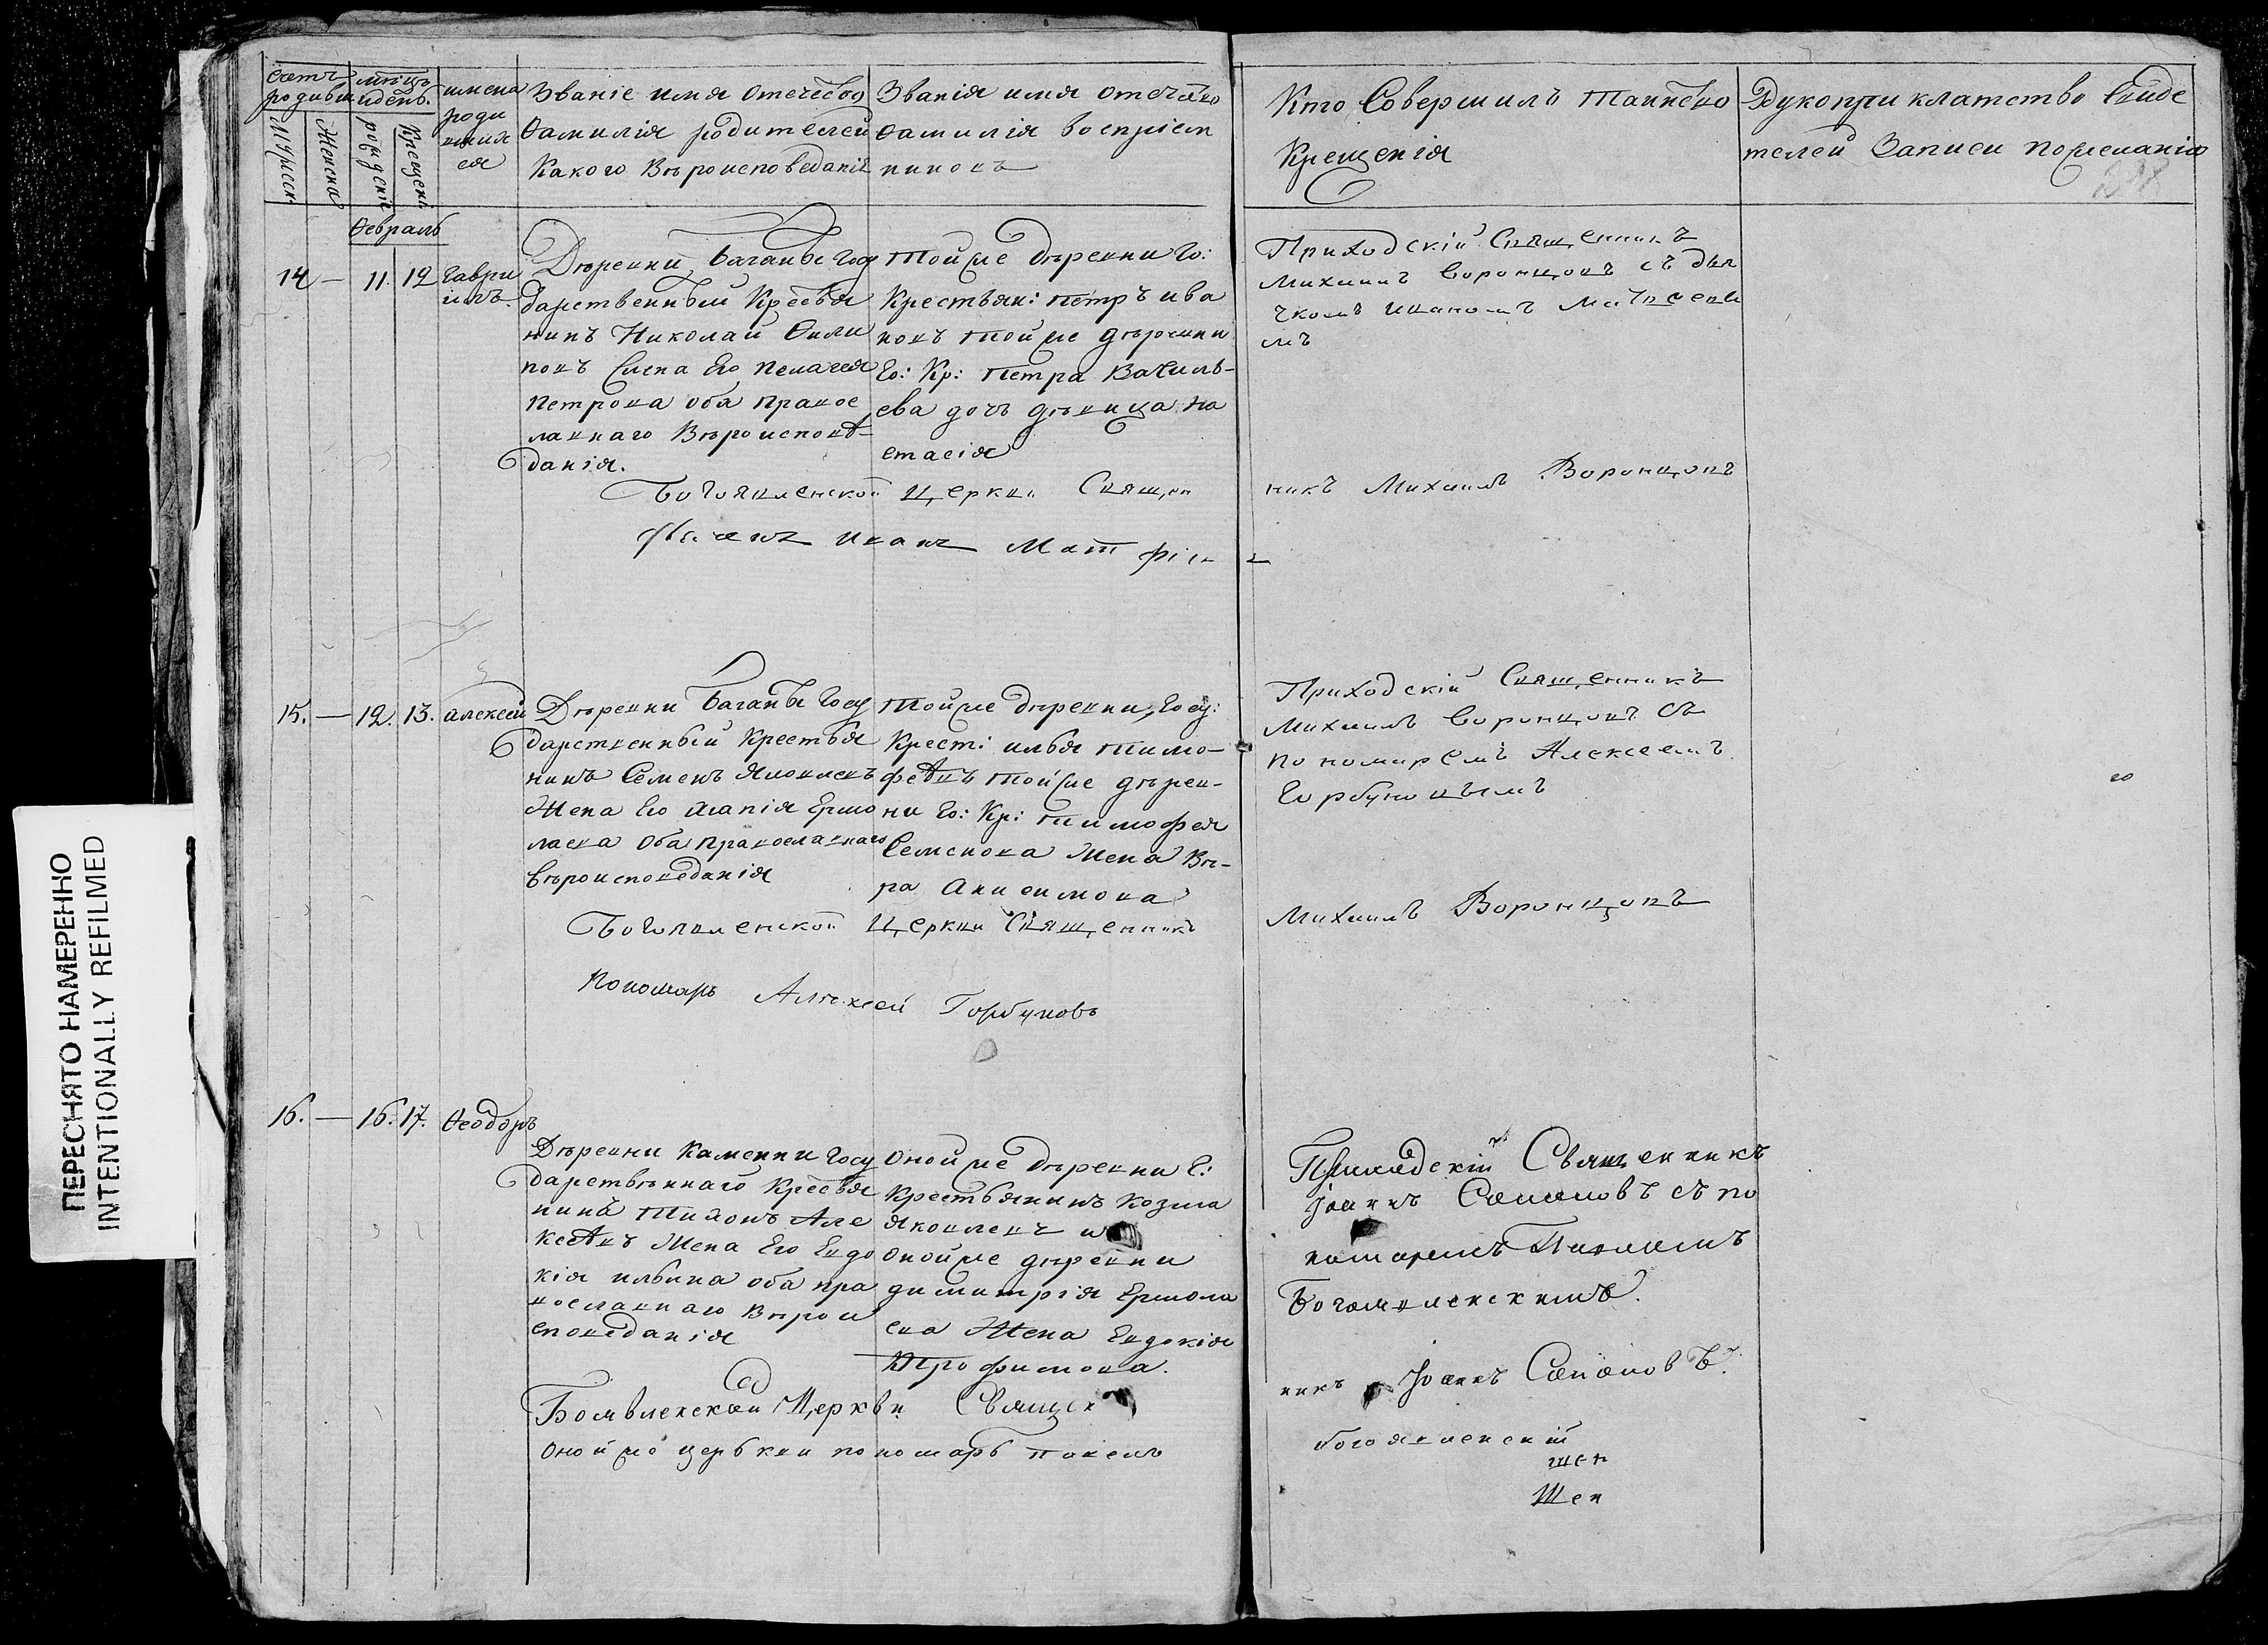 счетъ родивш
мѣсцъ идень.
имена роди вшия ся
Званіе имя отечество
Фамилія родителей
Какого Вѣроисповеданія
Званія имя отечество
фамилія воспріем
никовъ
Кто Совершилъ таинство
Крещенія
Рукоприкладство Свиде
телей Записи по желанію
Мужеска
Женска
рожденіе
Крещені
Февраль
14 — 11. 12 Гаври
илъ
Дѣревни Баганы Госу
дарственный Крестья
нинъ Николай Фили
повъ Жена Его Пелагея
Петрова оба правос
лавнаго Вѣроисповѣ-
данія.
тойже дѣревни Го:
Крестьян: петръ ива
новъ тойже дѣревни
Го: Кр: петра Василь-
ева дочъ дѣвица На
стасія
Приходскій Священникъ
михаилъ Воронцовъ съ дья
чкомъ иваномъ Матвеевы
мъ
Богоявленской Церкви Священ
никъ Михаилъ Воронцовъ
иванъ
15. — 12. 13. Алексей
Дѣревни Баганы Госу
дарственный Крестья
нинъ Семенъ Яковлевъ
Жена Его Агапія Ермо
лаева Оба православнаго
вѣроисповеданія
тойже дѣревни, Госу:
Крест: илья тимо-
фѣевъ тойже дѣрев-
ни Го: Кр: тимофея
Семенова Жена Вѣ-
ра Анисимова
Приходскій Священникъ
михаилъ Воронцовъ съ
пономаремъ Алексеемъ
Горбуновымъ
Богоявленской Церкви Священникъ
Михаилъ Воронцовъ
Пономарь Алѣксей Горбуновъ
16. — 16. 17. Феодоръ
Дѣревни Каменки Госу
дарствѣннаго Крестья
нинъ Тихонъ Але
ксѣевъ Жена Его Евдо
кія ильина оба пра
вославнаго Вѣрои
споведанія
Онойже дѣревни Г:
Крестьянинъ Козма
Яковлевъ и
онойже дѣревни
димитрія Ермола
ева Жена Евдокія
Трофимова.
Приходскій Священникъ
Іоаннъ съ по
номаремъ Павломъ
Богоявленскимъ.
Боявленской Церкви Священ
никъ Іоаннъ
Онойже церькви пономарь павелъ
богоявленскій
Шен
ПЕРЕСНЯТО НАМЕРЕННО
INTENTIONALLY REFILMED